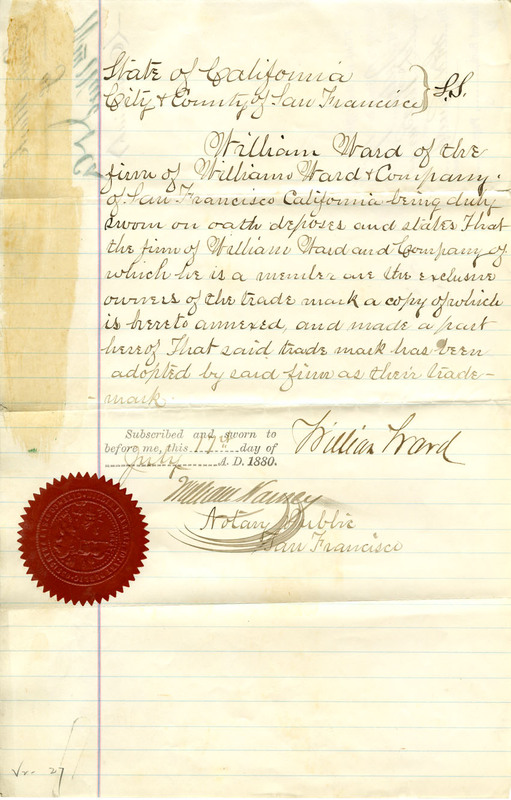 State of California
City & County of San Francisco } S.S.
William Ward of the
firm of William Ward & Company
of San Francisco California being duly
sworn on oath deposes and states That
the firm of William Ward and Company of
which he is a member are the exclusive
owners of the trade mark a copy of which
is hereto annexed, and made a part
hereof That said trade mark has been
adopted by said firm as their trade-
mark.
Subscribed and sworn to
before me, this 17th day of
July A. D. 1880.
William Ward
William
Notary Public
San Francisco
27